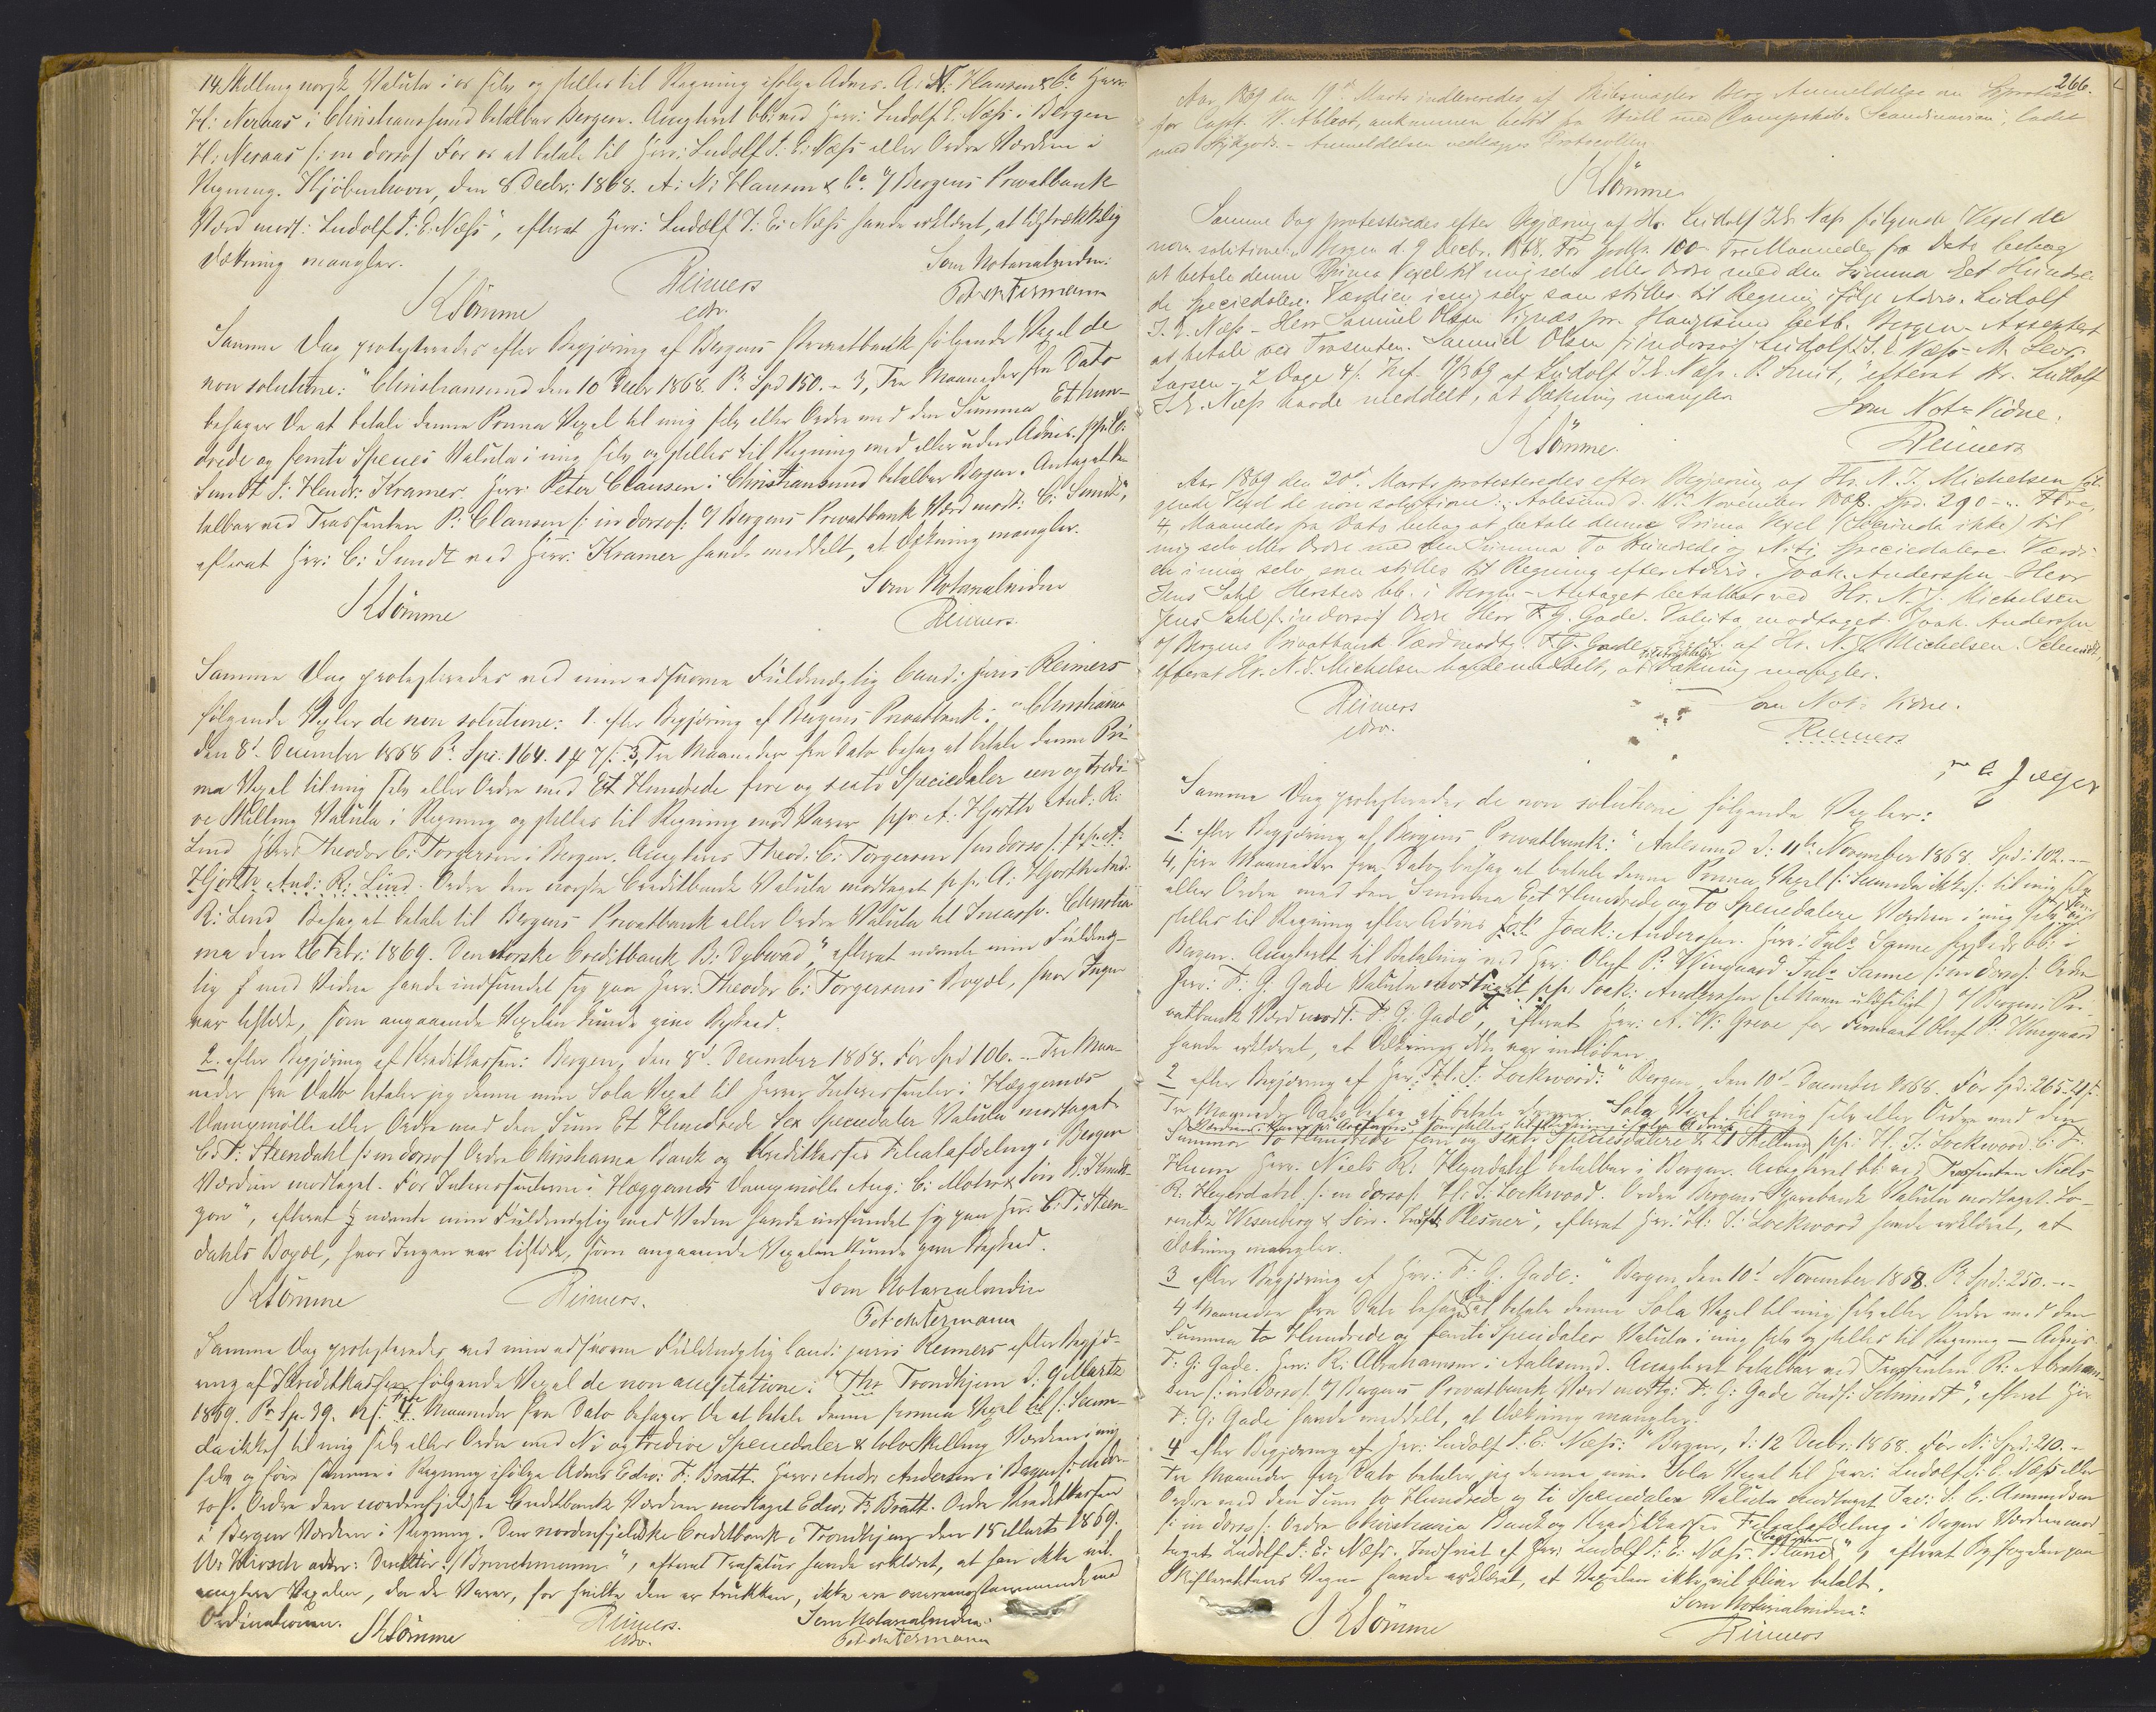 14 Skilling norsk Valuta i os selv og stilles til Regning ifølge Advis. A. N. Hansen & Co. Herr
H: Neraas i Christianssund betalbar Bergen. Accepteret bb: ved Herr: Ludolf E. Næss i Bergen
H: Neraas /: in dorso/ For os at betale til Herr: Ludolf I: E: Næss eller Ordre Værdien i
Regning. Kjöbenhavn, den 8 Decbr: 1868. A: N: Hansen & Co. o/ Bergens Privatbank
Værd modt: Ludolf I: E: Næss", efterat Herr: Ludolf I: E: Næss havde erklæret, at tilstrækkelig
Dækning mangler.
Som Notarialvidne:
Klömme
Reimers
edv.
Samme Dag protesteredes efter Begjæring af Bergens Privatbank følgende Vexel de
non solutione: "Christiansund den 10 Decbr 1868. Pr. Spd 150. - 3, Tre Maaneder fra Dato
behager De at betale denne Prima Vexel til mig selv eller Ordre med den Summa Et hun-
drede og femti Species Valuta i mig selv og stilles til Regning med eller uden Advis. pp C.
Sundt I: Hendr: Kramer. Herr: Peter Clausen i Christiansund betalbar Bergen. Antaget be-
talbar ved Trassenten P: Clausen /: in dorso/: o/ Bergens Privatbank Værd modt: C: Sundt",
efterat Herr: C: Sundt ved Herr: Kramer havde meddelt, at Dækning mangler.
Som Notarialvidne
Klömme
Reimers
Samme Dag protesteredes ved min edsvorne Fuldmægtig Cand: juris Reimers
følgende Vexler de non solutione: 1. efter Begjæring af Bergens Privatbank: "Christiania
den 8d. December 1868 Pr. Spd. 164. 1 7 /: 3, Tre Maaneder fra Dato behag at betale denne Pri-
ma Vexel til mig selv eller Ordre med Et Hundrede fire og sexti Speciedaler een og tredi-
ve Skilling Valuta i Regning og stilles til Regning med Varer pp A: Hjorth And: R:
Lind Herr: Theodor C: Torgersen i Bergen. Accepteres Theod: C: Torgersen /in dorso/: pp A:
Hjorth And: R: Lind. Ordre den norske Creditbank Valuta modtaget pp A: Hjorth And:
R: Lind Behag at betale til Bergens Privatbank eller Ordre Valuta til Incasso. Christia-
nia den 26 Febr: 1869. Den norske Creditbank B: Dybwad", efterat nævnte min Fuldmæg-
tig med Vidne havde indfundet sig paa Herr: Theodor C: Torgersens Bopæl, hvor Ingen
var tilstede, som angaaende Vexelen kunde give Besked.
2. efter Begjæring af Kreditkassen: Bergen, den 8d. December 1868. For Spd 106. - Tre Maa-
neder fra Dato betaler jeg denne min Sola Vexel til Herrer Interessenter i Hæggernæs
Dampmølle eller Ordre med den Sum Et Hundrede Sex Speciedaler Valuta modtaget
C: F: Steendahl /: in dorso/ Ordre Christiania Bank og Kreditkasses Filialafdeling i Bergen
Værdien modtaget. For Interessenterne i Hæggernæs Dampmølle Aug: C: Mohr & Søn P: Knudt-
zon", efterat nævnte min Fuldmægtig med Vidne havde indfundet sig paa Herr: C: F: Steen-
dahls Bopæl, hvor Ingen var tilstede, som angaaende Vexelen kunde give Besked.
Som Notarialvidne
Klömme
Reimers.
Samme Dag protesteredes ved min edsvorne Fuldmægtig Cand: juris Reimers efter Begjæ-
ring af Kreditkassen følgende Vexel de non acceptatione: "Trondhjem d. 9 Marts
1869. Pr Sp. 39. 12/: 4 Maaneder fra Dato behager De at betale denne prima Vexel /: Secun-
da ikke/ til mig selv eller Ordre med Ni og tredive Speciedaler & tolv Skilling Værdien i mig
selv og före samme i Regning ifølge Advis Edw: F: Bratt. Herr: Andr: Andersen i Bergen /: in dor-
so/: Ordre den nordenfjeldske Creditbank Værdien modtaget Edw: F: Bratt. Ordre Kreditkassen
i Bergen Værdien i Regning. Den nordenfjeldske Creditbank i Trondhjem den 15 Marts 1869.
W: Hirsch adm: Direktör. / Bruchmann", efterat Trassatus havde erklæret, at han ikke vil
acceptere Vexelen, da de Varer, for hvilke den er trukken, ikke ere overensstemmende med
Ordinationen.
Som Notarialvidne:
Klömme
Reimers.
edv.
266.
Aar 1869 den 19d. Marts indleveredes af Skibsmægler Berg Anmeldelse om Søprotest
for Capt. W. Ablett, ankommen hertil fra Hull med Dampskib "Scandinavian", ladet
med Stykgods. - Anmeldelsen vedlægges Protocollen
Klömme
Samme Dag protesteredes efter Begjæring af Hr. Ludolf I. E. Næss følgende Vexel de
non solutione: Bergen d. 9 Decbr. 1868. For Spdlr. 100 - Tre Maaneder fra Dato behag
at betale denne Prima Vexel til mig selv eller Ordre med den Summa Eet Hundre-
de Speciedaler. Værdien i mig selv som stilles til Regning ifølge Advis. Ludolf
I. E. Næss - Herr Samuel Olsen Vignæs pr. Haugesund betb. Bergen. Accepteret
at betale ved Trasenten. Samuel Olsen /: indorso/ Ludolf I. E. Næss - M. Levr.
Larsen. 2 Dage
I. E. Næss havde meddelt, at Dækning mangler
Som Not: Vidne.
Klömme.
Reimers
Aar 1869 den 20d. Marts protesteredes efter Begjæring af Hr. N. J. Michelsen føl-
gende Vexel de non solutione: Aalesund d. November 1868. Spd. 290 - Fire,
4, Maaneder fra Dato behag at betale denne Prima Vexel (Secunda ikke) til
mig selv eller Ordre med den Summa To Hundrede og Niti Speciedalere. Værdi-
en i mig selv som stilles til Regning efter Advis. Joak. Anderssen - Herr
Jens Sahl Hersted bb. i Bergen - Antaget betalbar ved Hr. N. J. Michelsen
Jens Sahl /: indorso/ Ordre Herr F. G. Gade. Valuta modtaget. Joak. Anderssen
o/ Bergens Privatbank Værd modt. F. G. Gade. af Hr. N. J. Michelsen. Schmidt,
efterat Hr. N. J. Michelsen havde meddelt, at Dækning mangler.
Som Not: Vidne.
Reimers
edv.
Reimers
Jæger
Samme Dag protesteredes de non solutione følgende Vexler:
1. efter Begjæring af Bergens Privatbank: "Aalesund d: 11te November 1868. Spd: 102. -
4, fire Maaneder fra Dato behag at betale denne Prima Vexel /: Secunda ikke/: til mig selv
eller Ordre med den Summa Eet Hundrede og To Speciedalere Værdien i mig selv
stilles til Regning efter Advis Joak: Anderssen. Herr: Sanne bb: i
Bergen. Accepteret til Betaling ved Herr: Oluf P. Wiingaard Sanne /: in dorso/: Ordre
Herr: F: G: Gade Valuta modtaget pp: Joak: Anderssen (et Navn ulæseligt) o/ Bergens Pri-
vatbank Værd modt: F: G: Gade", efterat Herr: A: W: Greve for Firmaet Oluf P: Wiingaard
havde erklæret, at Dækning ikke var indløben.
2 efter Begjæring af Herr: H: I: Lockwood: "Bergen, den 10d. December 1868. For Spd: 265-21 /:
Tre Maaneder Dato behag at betale denne Sola Vexel til mig selv eller Ordre med den
Summa To Hundrede fem og Sexti Speciesdalere & 21 Skilling pp: H: I: Lockwood C: F:
Herr: Niels R: Heyerdahl betalbar i Bergen. Accepteret bb: ved Trassenten Niels
R. Heyerdahl /: in dorso/: H: I. Lockwood. Ordre Bergens Sparebank Valuta modtaget. Lo-
rentz Wesenberg & Søn. Indft: Plesner", efterat Herr: H: I: Lockwood havde erklæret, at
Dækning mangler.
3 efter Begjæring af Herr: F: G. Gade: "Bergen, den 10d. November 1868. Pr Spd: 250. - -
4 Maaneder fra Dato behag at betale denne Sola Vexel til mig selv eller Ordre med den
Summa to Hundrede og femti Speciedaler Valuta i mig selv og stilles til Regning - Advis
F: G: Gade. Herr: R: Abrahamsen i Aalesund. Accepteret betalbar ved Trassenten R: Abraham-
sen /: in dorso/: o/ Bergens Privatbank Værd modtg: F: G: Gade Indf: Schmidt", efterat Herr
F: G: Gade havde meddelt, at Dækning mangler.
4 efter Begjæring af Herr: Ludolf I: E: Næss: "Bergen, d: 12 Decbr: 1868. For No: Spd: 210. -
tre Maaneder fra Dato betaler jeg denne min Sola Vexel til Herr: Ludolf I: E: Næss eller
Ordre med den Sum to Hundrede og ti Speciedaler Valuta modtaget I: C: Amundsen
/: in dorso/: Ordre Christiania Bank og Kreditkasses Filialafdeling i Bergen Værdien mod-
taget Ludolf I: E: Næss. Indfriet af Herr: Ludolf I: E: Næss. Bland", efterat Byfogden paa
Skifterettens Vegne havde erklæret, at Vexelen ikke vil blive betalt.
Som Notarialvidne:
Klömme
Reimers